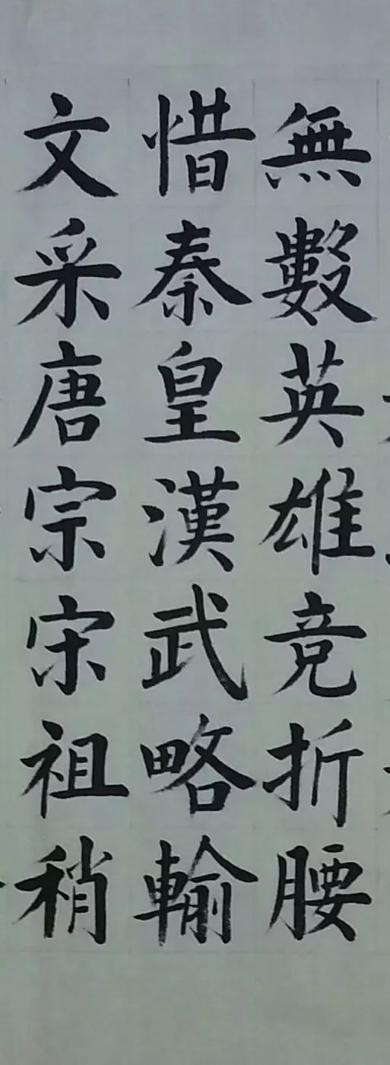 無數英雄竞折腰
惜秦皇漢武略輸
文采唐宗宋祖稍